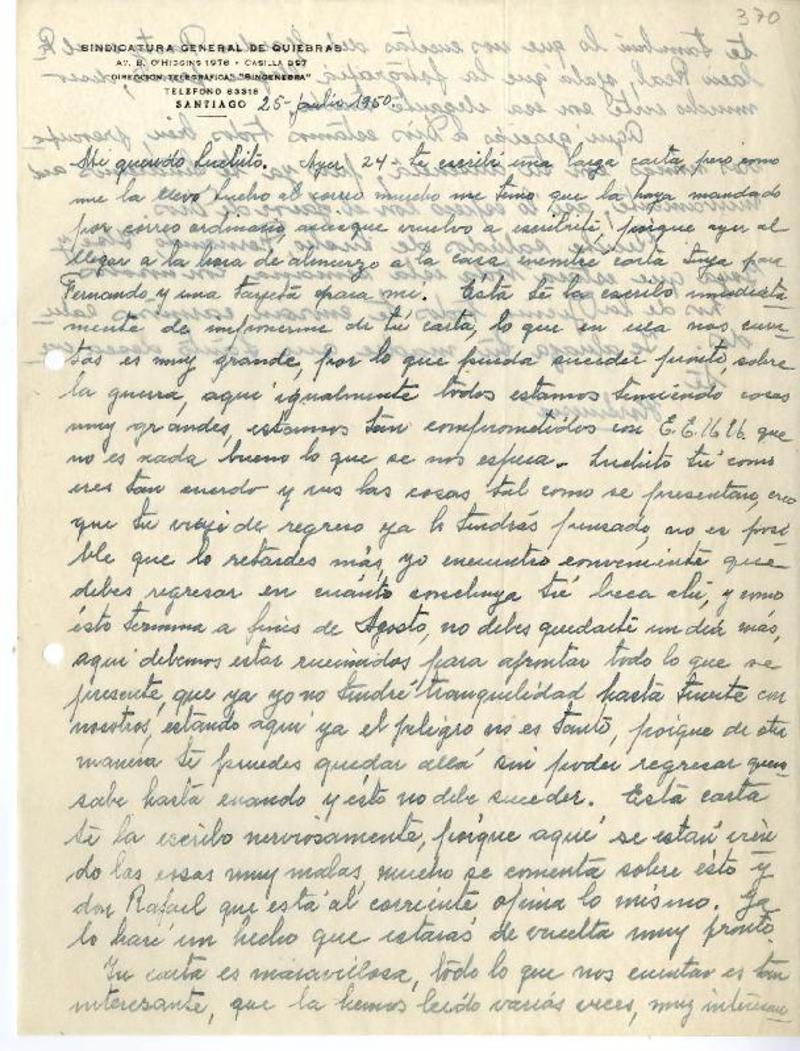 370
SINDICATURA GENERAL DE QUIEBRAS
AV. B. O'HIGGINS 1978 - CASILLA 997
DIRECCION TELEGRAFICA: "SINGENEBRA"
TELEFONO 83318
SANTIAGO 25-Julio 1950-
Mi querido Luchito. Ayer 24- te escribí una larga carta, pero como
me la llevó Lucho al correo mucho me temo que la haya mandado
por correo ordinario, aunque vuelvo a escribirte, porque ayer al
llegar a la hora de almuerzo a la casa encontré carta tuya para
Fernando y una tarjeta para mí. Esta te la escribo inmediata
mente de imponerme de tú carta, lo que en esa nos cuen-
tas es muy grande, por lo que pueda suceder pronto, sobre
la guerra, aquí igualmente todos estamos temiendo cosas
muy grandes, estamos tan comprometidos con E.E.U.U. que
no es nada bueno lo que se nos espera. Luchito tú como
eres tan cuerdo y ves las cosas tal como se presentan, creo
que tu viaje de regreso ya lo tendrás pensado, no es posi-
ble que lo retardes más, yo encuentro conveniente que
debes regresar en cuánto concluya tú beca ahí, y como
ésto termina a fines de Agosto, no debes quedarte un día más,
aquí debemos estar reunidos para afrontar todo lo que se
presente, que ya yo no tendré tranquilidad hasta tenerte con
nosotros, estando aquí ya el peligro no es tanto, porque de otra
manera te puedes quedar allá sin poder regresar quen
sabe hasta cuando y ésto no debe suceder. Esta carta
te la escribo nerviosamente, porque aquí se están vién
do las cosas muy malas, mucho se comenta sobre ésto y
don Rafael que está al corriente opina lo mismo. Ya
lo haré un hecho que estarás de vuelta muy pronto.
Tu carta es maravillosa, todo lo que nos cuentas es tan
interesante, que la hemos leído varias veces, muy interesan